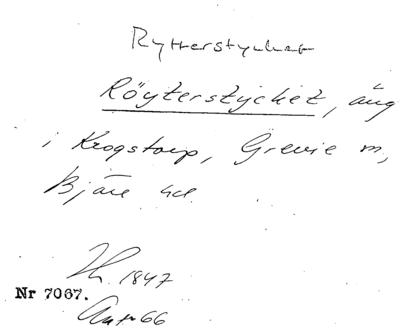 Rytterstycket
Röyterstycket, äng
i Krogstorp, Grevie sn,
Bjäre hd.
1847
Nr 7067.
66